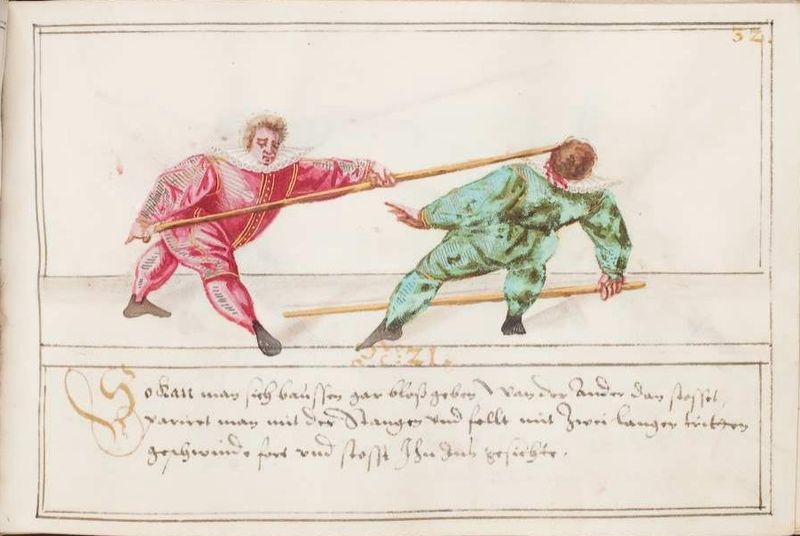 52.
21.
So kan man sich daussen gar bloß geben, Wan der Ander dan stosset,
pariret man mit der Stangen vnd fellt mit Zwei langen tritten
geschwinde fort vnd stosst Ihn Ins gesichte.